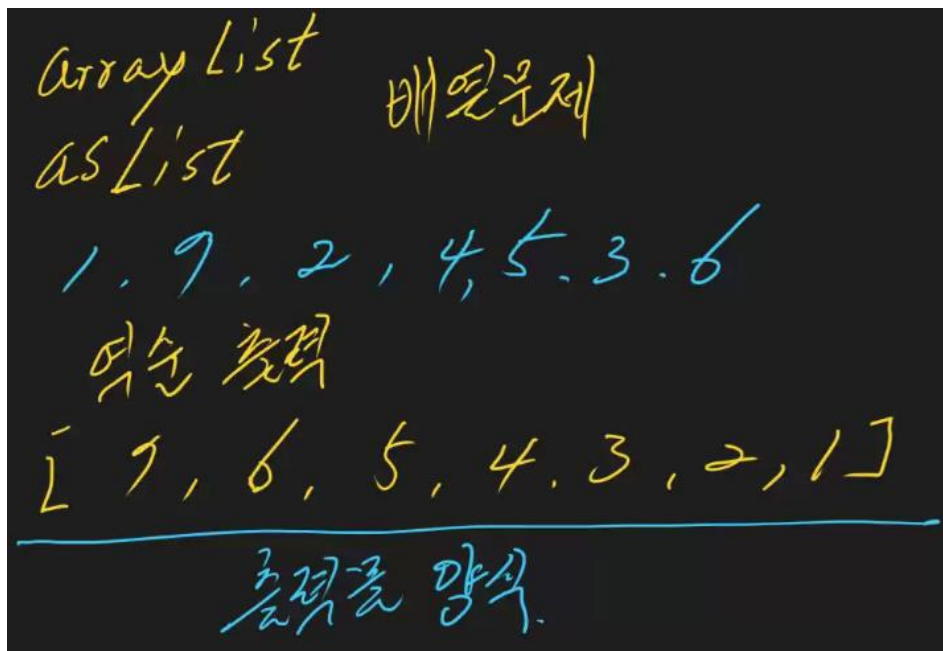 arrayList
배열문제
asList
1, 9, 2, 4, 5, 3, 6
역순 출력
[ 9, 6, 5, 4, 3, 2, 1 ]
출력물 양식.